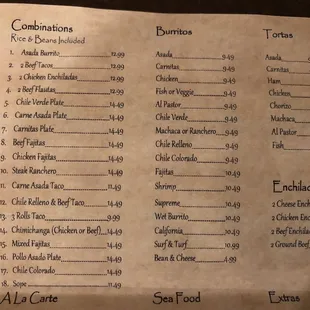 Combinations
Rice & Beans Included
1. Asada Burrito 12.99
2. 2 Beef Tacos 12.99
3. 2 Chicken Enchiladas 11.49
4. 2 Beef Flautas 12.99
5. Chile Verde Plate 14.49
6. Carne Asada Plate 14.49
7. Carnitas Plate 14.49
8. Beef Fajitas 14.49
9. Chicken Fajitas 14.49
10. Steak Ranchero 14.49
11. Carne Asada Taco 11.49
12. Chile Relleno & Beef Taco 14.49
13. 3 Rolls Taco 9.99
14. Chimichanga (Chicken or Beef) 14.49
15. Mixed Fajitas 14.49
16. Pollo Asado Plate 14.49
17. Chile Colorado 14.49
18. Sope 11.49
A La Carte
Burritos
Asada 9.49
Carnitas 9.49
Chicken 9.49
Fish or Veggie 9.49
Al Pastor 9.49
Chile Verde 9.49
Machaca or Ranchero 9.49
Chile Relleno 9.49
Chile Colorado 9.49
Fajitas 10.49
Shrimp 10.49
Supreme 10.49
Wet Burrito 10.49
California 10.49
Surf & Turf 10.49
Bean & Cheese 4.99
Sea Food
Tortas
Asada
Carnitas
Ham
Chicken
Chorizo
Machaca
Al Pastor
Fish
Enchilad
2 Cheese Ench
2 Chicken Enc
2 Beef Enchilad
2 Ground Beef
Extras